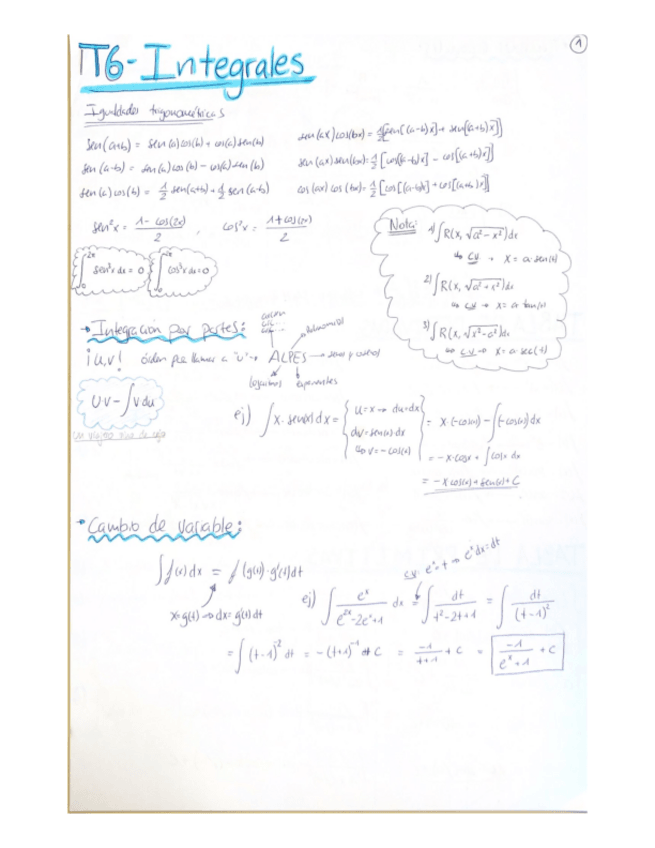 1
T6-Integrales
Igualdades trigonométricas
sen(a+b) = sen(a)cos(b) + cos(a)sen(b)
sen(a-b) = sen(a)cos(b) - cos(a)sen(b)
sen(a)cos(b) = 1/2 sen(a+b) + 1/2 sen(a-b)
sen(ax)cos(bx) = 1/2[sen[(a-b)x] + sen[(a+b)x]]
sen(ax)sen(bx) = 1/2[cos[(a-b)x] - cos[(a+b)x]]
cos(ax)cos(bx) = 1/2[cos[(a-b)x] + cos[(a+b)x]]
sen²x = (1 - cos(2x))/2 , cos²x = (1 + cos(2x))/2
∫₀^2π sen³x dx = 0 ∫₀^2π cos³x dx = 0
Nota: 1) ∫R(x, √a²-x²)dx
↪ C.V → x = a·sen(t)
2) ∫R(x, √a²+x²)dx
↪ C.V → x = a·tan(t)
3) ∫R(x, √x²-a²)dx
↪ C.V → x = a·sec(t)
→ Integración por partes:
¡u,v! orden para llamar a "u" → ALPES → senos y cosenos
arcsen
polinomios
logaritmos exponentes
u·v - ∫v du
ej) ∫x·sen(x)dx = { u=x → du=dx
dv=sen(x)dx
↪ v=-cos(x) } = x·(-cosx) - ∫(-cosx)dx
= -x·cosx + ∫cosx dx
= -x cos(x) + sen(x) + C
→ Cambio de variable:
∫f(x)dx = ∫f(g(t))·g'(t)dt
x=g(t) → dx=g'(t)dt
C.V: eˣ=t → eˣdx=dt
ej) ∫ eˣ/(e²ˣ-2eˣ+1) dx = ∫ dt/(t²-2t+1) = ∫ dt/(t-1)²
= ∫(t-1)⁻² dt = -(t+1)⁻¹ + C = -1/(t+1) + C = -1/(eˣ+1) + C